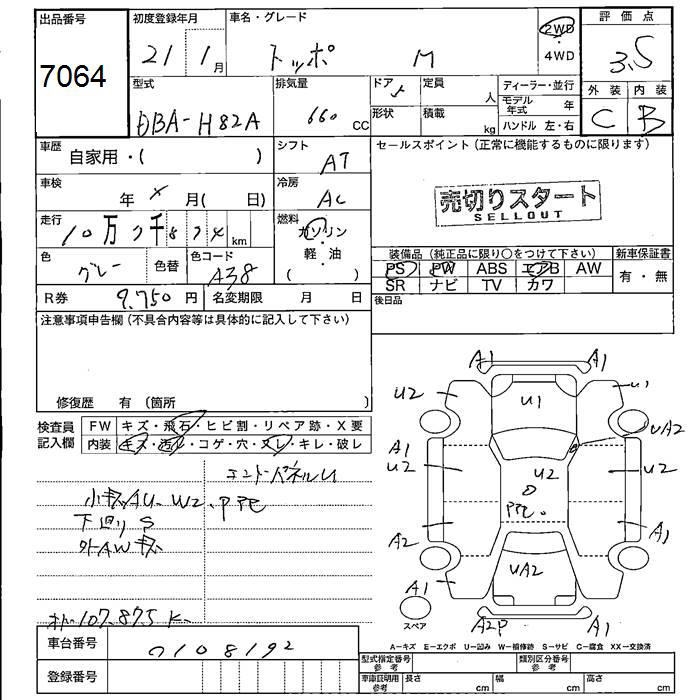 出品番号 初度登録年月 車名・グレード 評価点
7064 21 1月 トッポ M 2WD・4WD 3.5
型式 排気量 ドア 定員 人 ディーラー・並行 外装 内装
DBA-H82A 660 CC 5 形状 積載 kg モデル年式 年 C B
ハンドル 左・右
車歴 自家用・( ) シフト AT セールスポイント(正常に機能するものに限ります)
車検 年 × 月( 日) 冷房 AC 売切りスタート
SELLOUT
走行 10万7千874km 燃料 ガソリン・軽・油( )
色 グレー 色替 色コード A38 装備品(純正品に限り○をつけて下さい) 新車保証書
PS PW ABS エアB AW 有・無
R券 9.750円 名変期限 月 日 SR ナビ TV カワ
後日品
注意事項申告欄(不具合内容等は具体的に記入して下さい)
修復歴 有 (箇所 )
検査員記入欄 FW キズ・飛石・ヒビ割・リペア跡・X要
内装 キズ・汚れ・コゲ・穴・スレ・キレ・破レ
エンドパネルU
小キズAU、W2、PPモ
下廻りS
外AWキズ
107.875K
A1 A1
U2 U1 U1
UA2
A1
U2 U2 U2
PPモ
A2 A1
UA2
A1
スペア A2P A1
A-キズ E-エクボ U-凹み W-補修跡 S-サビ C-腐食 XX-交換済
車台番号 0108192 型式指定番号 参考 類別区分番号 参考
登録番号 車庫証明用 参考 長さ cm 幅 cm 高さ cm